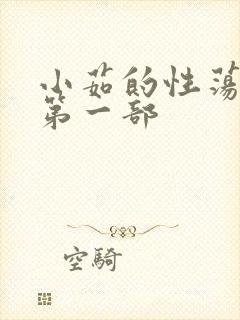 小茹的性荡
第一部
空騎